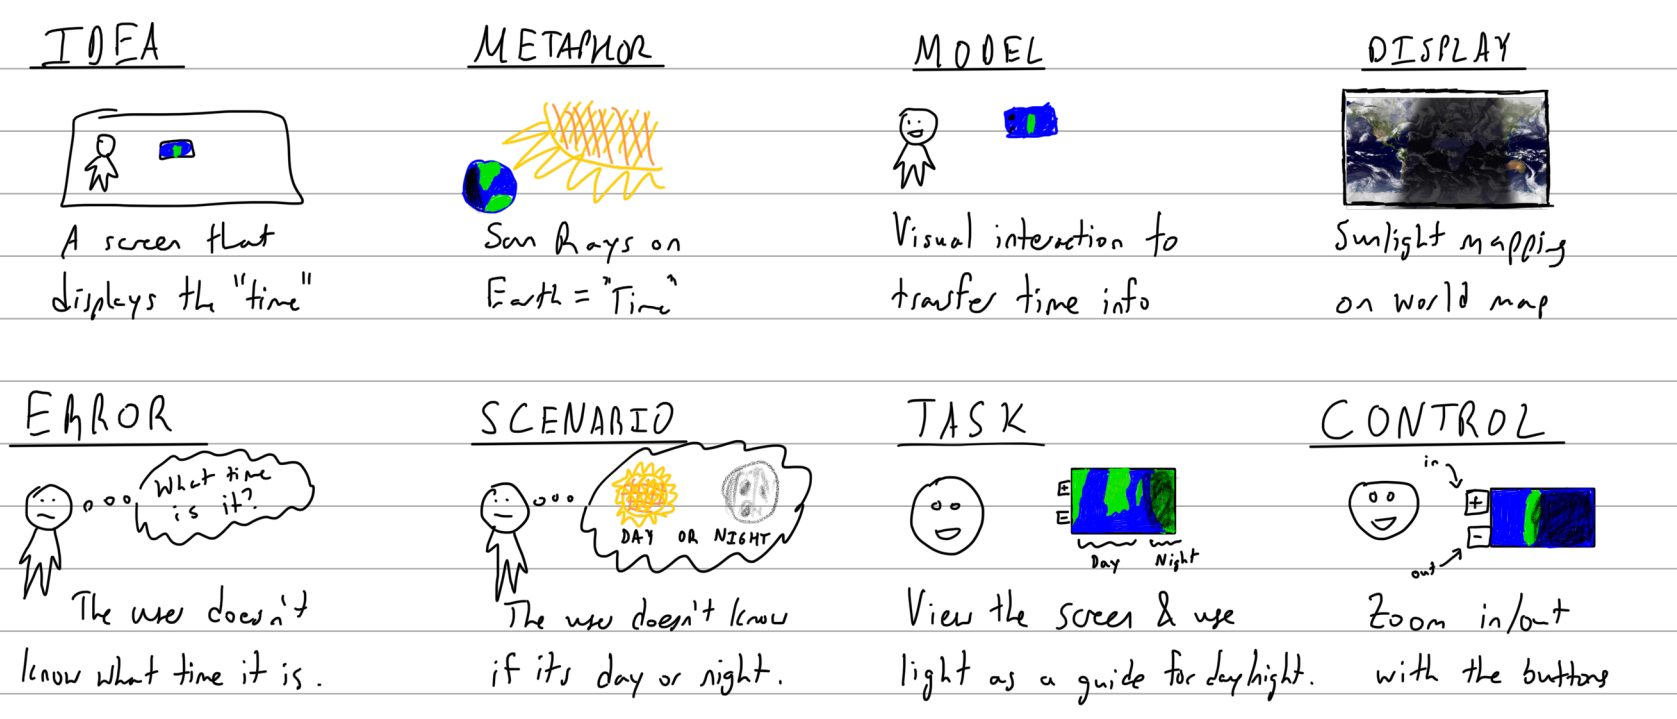 IDEA
METAPHOR
MODEL
DISPLAY
A screen that
displays the "time"
Sun Rays on
Earth = "Time"
Visual interaction to
transfer time info
Sunlight mapping
on world map
ERROR
What time
is it?
The user doesn't
know what time it is.
SCENARIO
DAY OR NIGHT
The user doesn't know
if its day or night.
TASK
Day Night
View the screen & use
light as a guide for day/night.
CONTROL
in
+
-
out
Zoom in/out
with the buttons